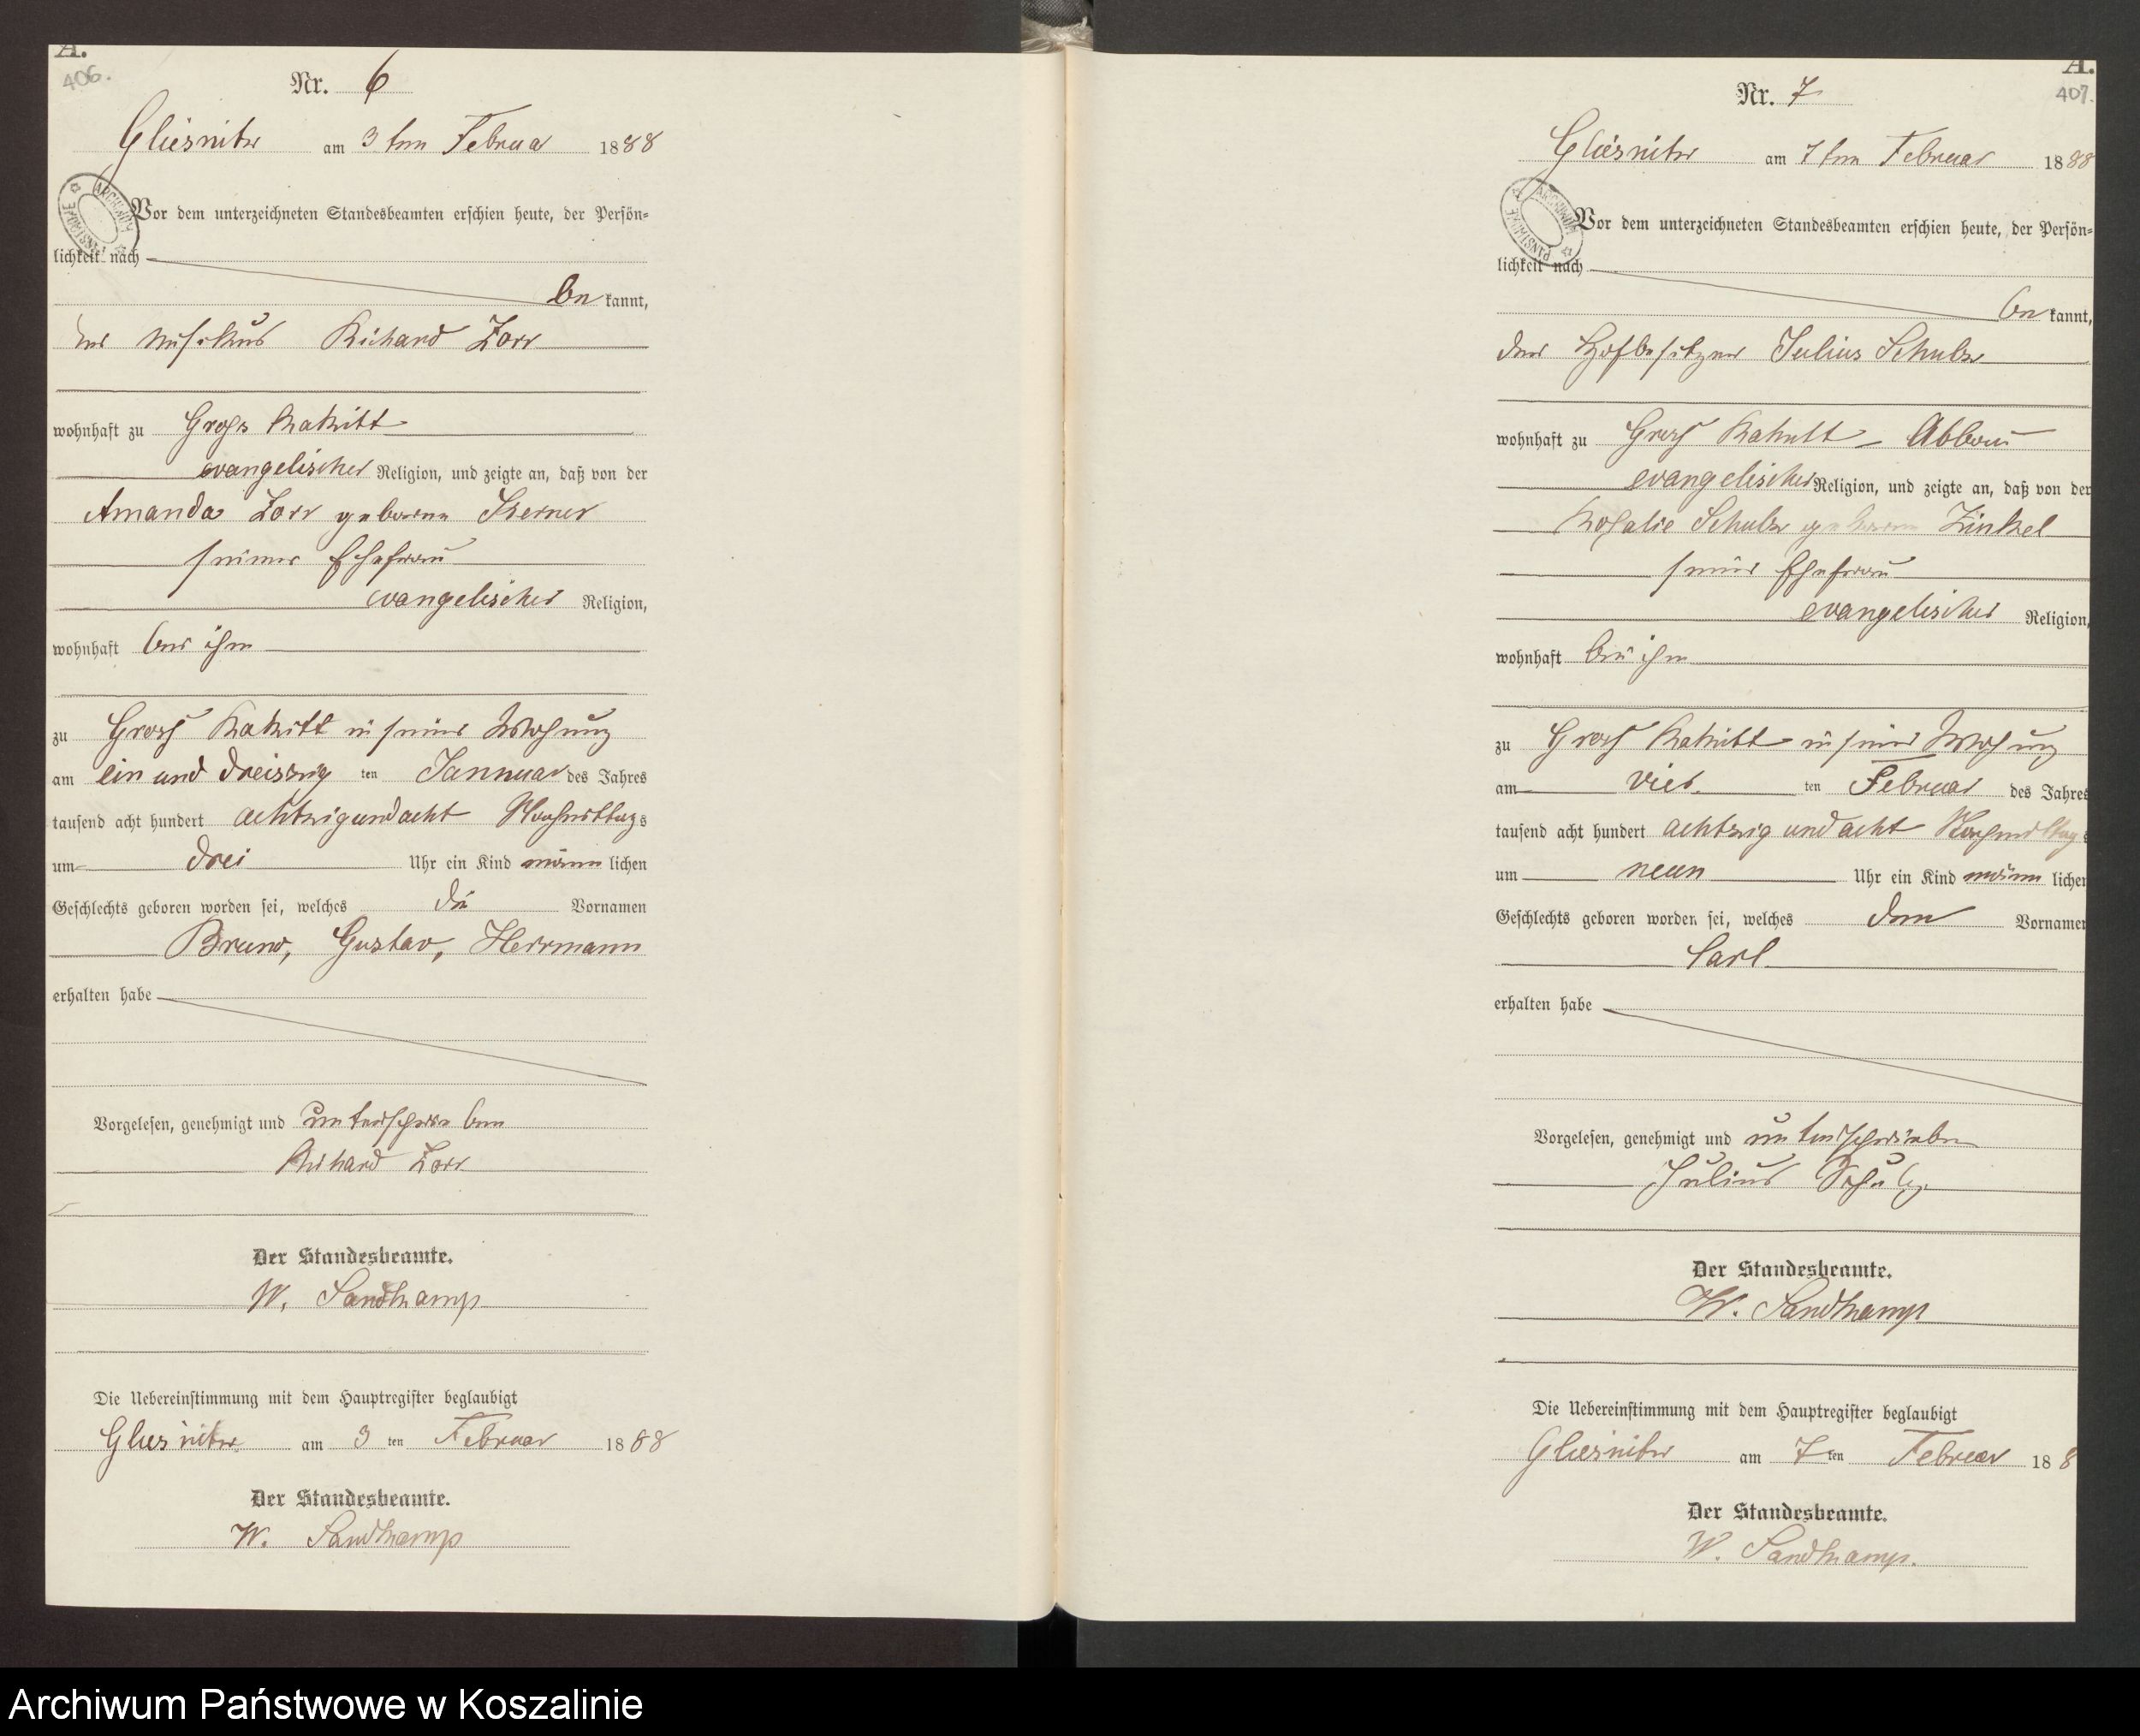 A.
406.
Nr. 6
Gliesnitz am 3 ten Februar 1888
ARCHIWUM PAŃSTWOWE
Vor dem unterzeichneten Standesbeamten erschien heute, der Persön=
lichkeit nach
be kannt,
der Musikus Richard Zorr
wohnhaft zu Gross Rakitt
evangelischer Religion, und zeigte an, daß von der
Amanda Zorr geborene
seiner Ehefrau
evangelischer Religion,
wohnhaft bei ihm
zu Gross Rakitt in seiner Wohnung
am ein und dreiszig ten Januar des Jahres
tausend acht hundert achtzig und acht Nachmittags
um drei Uhr ein Kind männ lichen
Geschlechts geboren worden sei, welches die Vornamen
Bruno, Gustav, Herrmann
erhalten habe
Vorgelesen, genehmigt und unterschrieben
Richard Zorr
Der Standesbeamte.
W. Sandkamp
Die Uebereinstimmung mit dem Hauptregister beglaubigt
Gliesnitz am 3 ten Februar 1888
Der Standesbeamte.
W. Sandkamp
A.
407.
Nr. 7
Gliesnitz am 7 ten Februar 1888
ARCHIWUM PAŃSTWOWE
Vor dem unterzeichneten Standesbeamten erschien heute, der Persön=
lichkeit nach
be kannt,
der Hofbesitzer Julius Schulz
wohnhaft zu Gross Rakitt Abbau
evangelischer Religion, und zeigte an, daß von der
Rosalie Schulz geborene Zinkel
seiner Ehefrau
evangelischer Religion,
wohnhaft bei ihm
zu Gross Rakitt in seiner Wohnung
am vier ten Februar des Jahres
tausend acht hundert achtzig und acht Nachmittags
um neun Uhr ein Kind männ lichen
Geschlechts geboren worden sei, welches den Vornamen
Carl
erhalten habe
Vorgelesen, genehmigt und unterschrieben
Julius Schulz
Der Standesbeamte.
W. Sandkamp
Die Uebereinstimmung mit dem Hauptregister beglaubigt
Gliesnitz am 7 ten Februar 188
Der Standesbeamte.
W. Sandkamp.
Archiwum Państwowe w Koszalinie